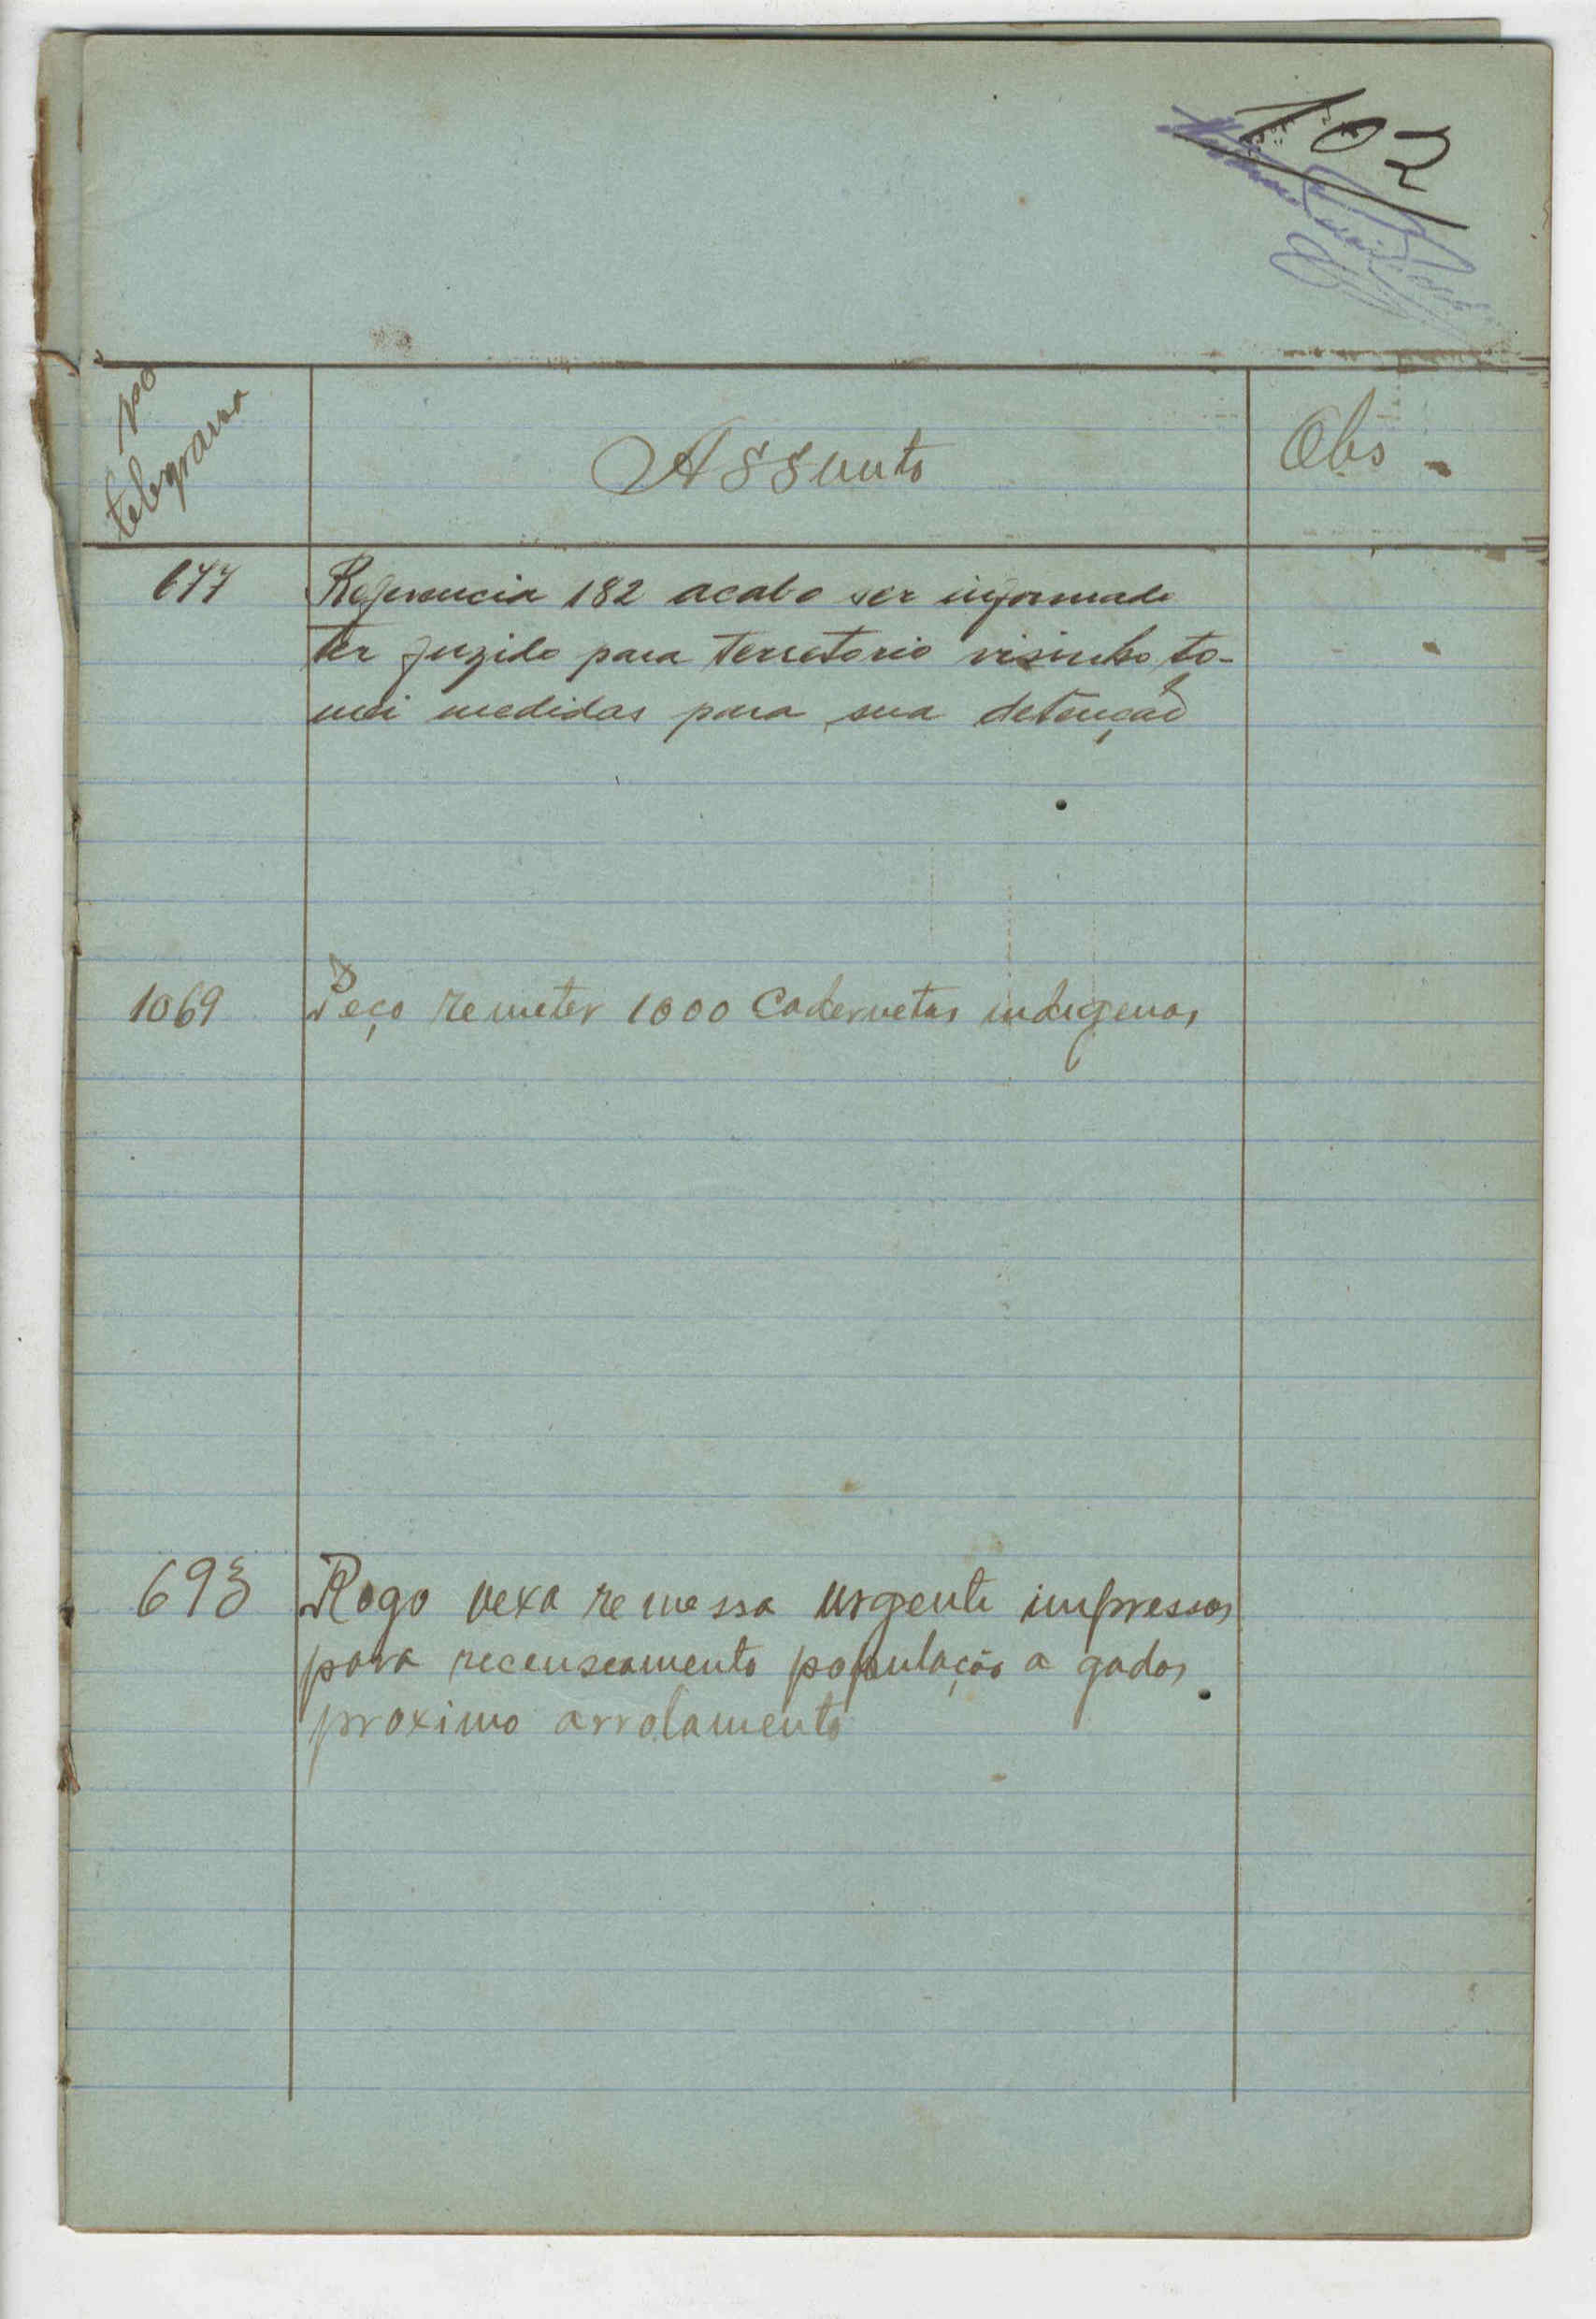 102
no
telegrama
Assunto
Obs -
677
Referencia 182 acabo ser informado
ter fugido para territorio visinho to-
mei medidas para sua detenção
1069
Peço remeter 1000 Cadernetas indigenas
693
Rogo vexa remessa urgente impressos
para recenseamento população a gados
proximo arrolamento